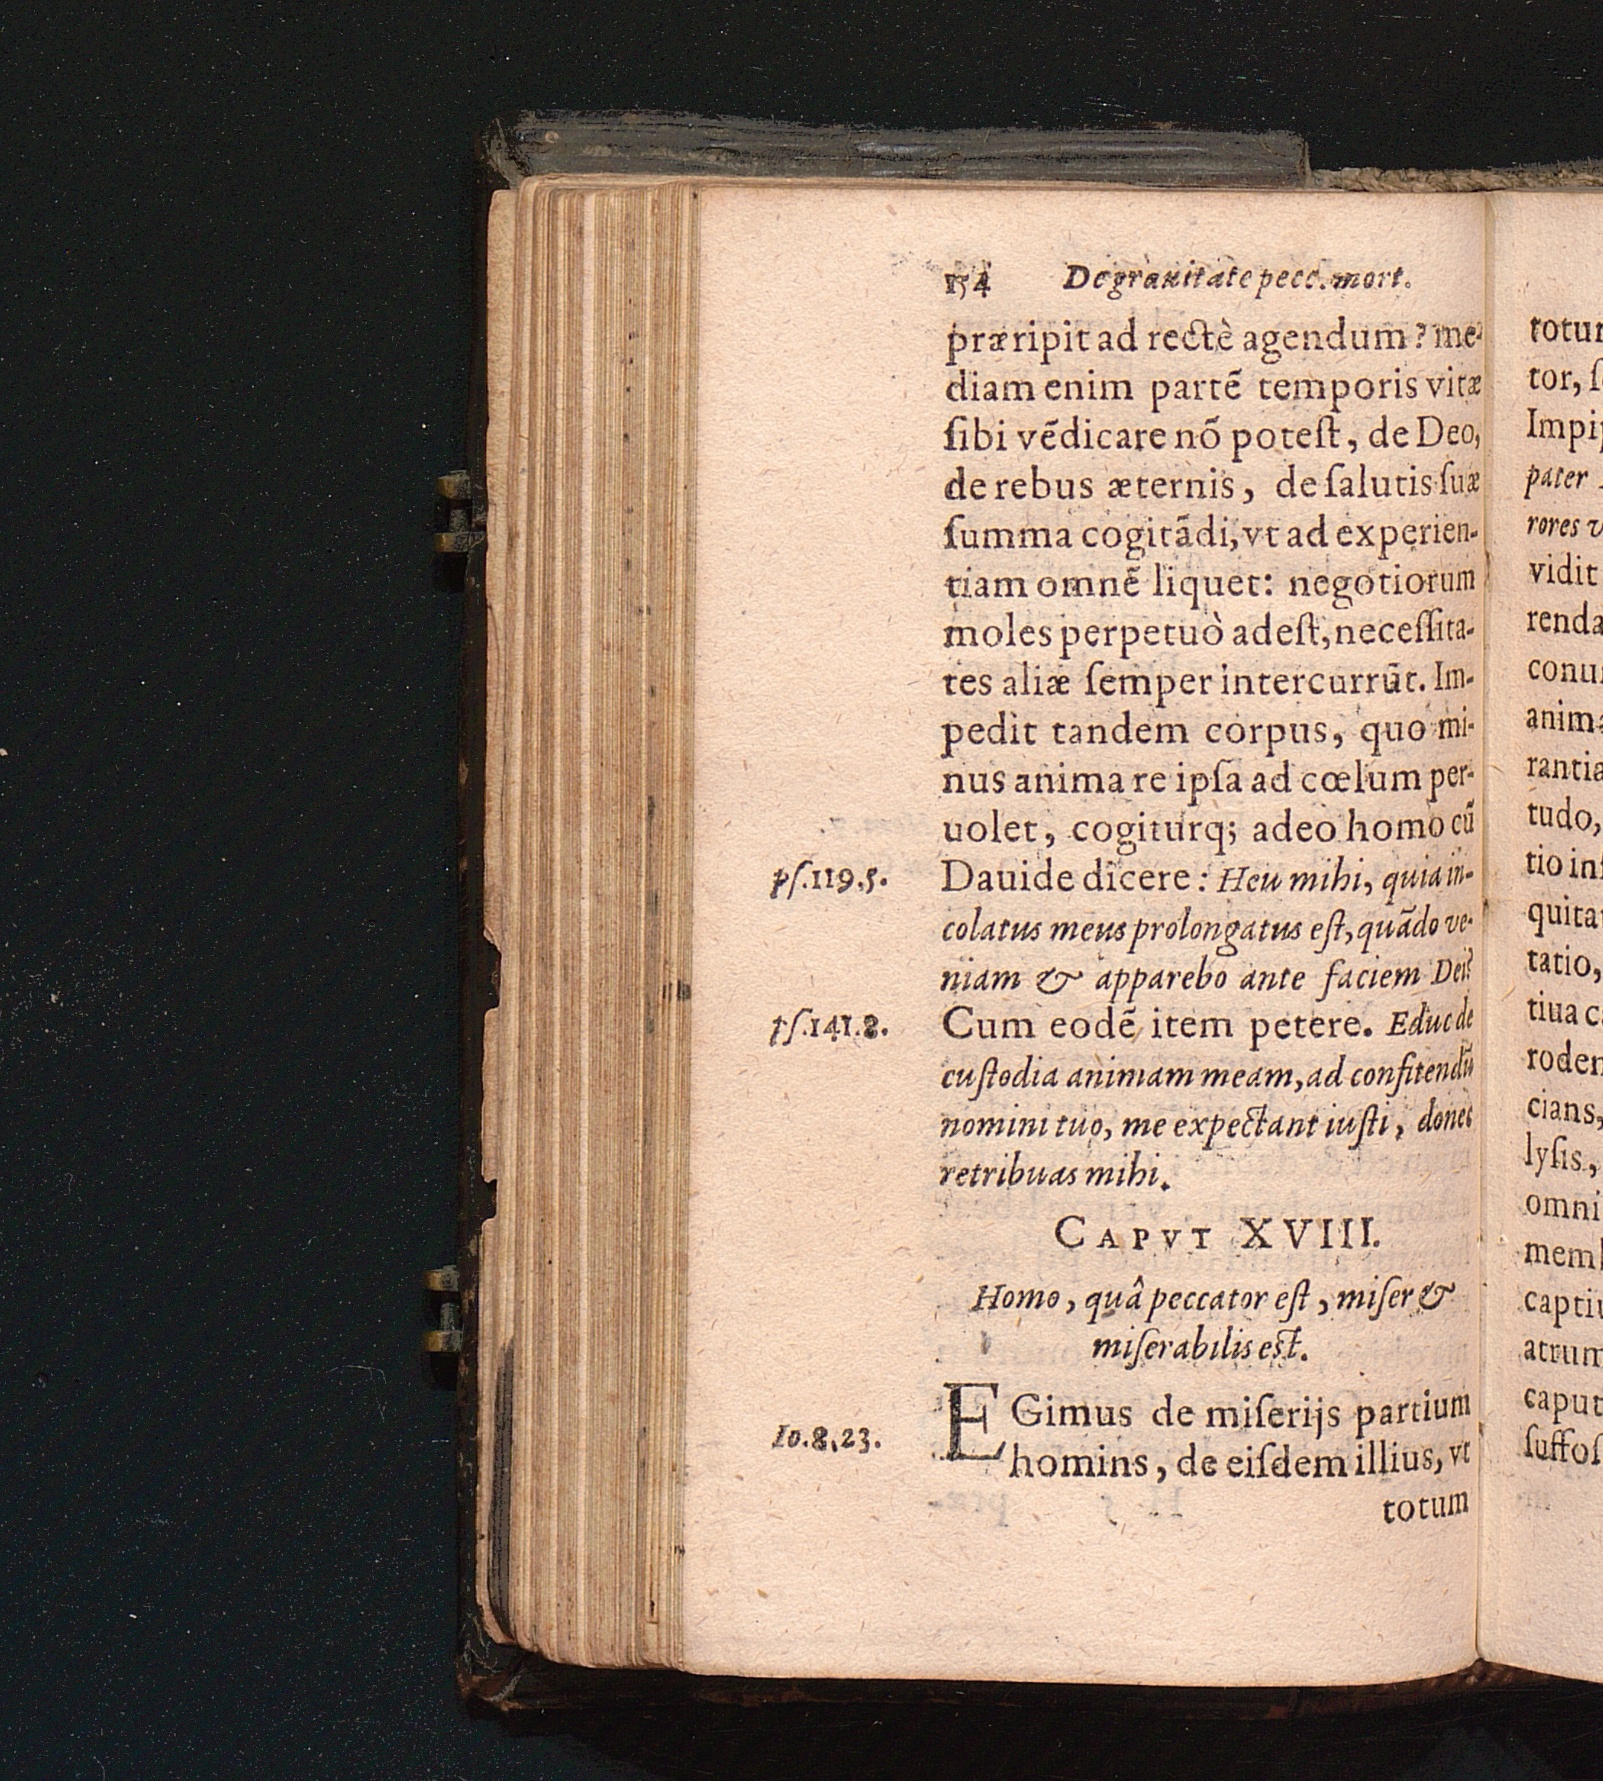 154 De grauitate pecc. mort.
præripit ad rectè agendum? me-
diam enim partẽ temporis vitæ
ſibi vẽdicare nõ poteſt, de Deo,
de rebus æternis, de ſalutis ſuæ
ſumma cogitãdi, vt ad experien-
tiam omnẽ liquet: negotiorum
moles perpetuò adeſt, neceſſita-
tes aliæ ſemper intercurrũt. Im-
pedit tandem corpus, quo mi-
nus anima re ipſa ad cœlum per-
uolet, cogiturq; adeò homo cũ
pſ.119.5. Dauide dicere: Heu mihi, quia in-
colatus meus prolongatus eſt, quãdo ve-
niam & apparebo ante faciem Dei?
pſ.141.8. Cum eodẽ item petere. Educ de
cuſtodia animam meam, ad confitendũ
nomini tuo, me expectant iuſti, donec
retribuas mihi.
CAPVT XVIII.
Homo, quâ peccator eſt, miſer &
miſerabilis eſt.
EGimus de miſerijs partium
Io.8.23. homins, de eiſdem illius, vt
totum
totum
tor,
pater
rores
vidit
renda
tudo,
tatio,
tiua
cians,
lyſis,
omni
caput